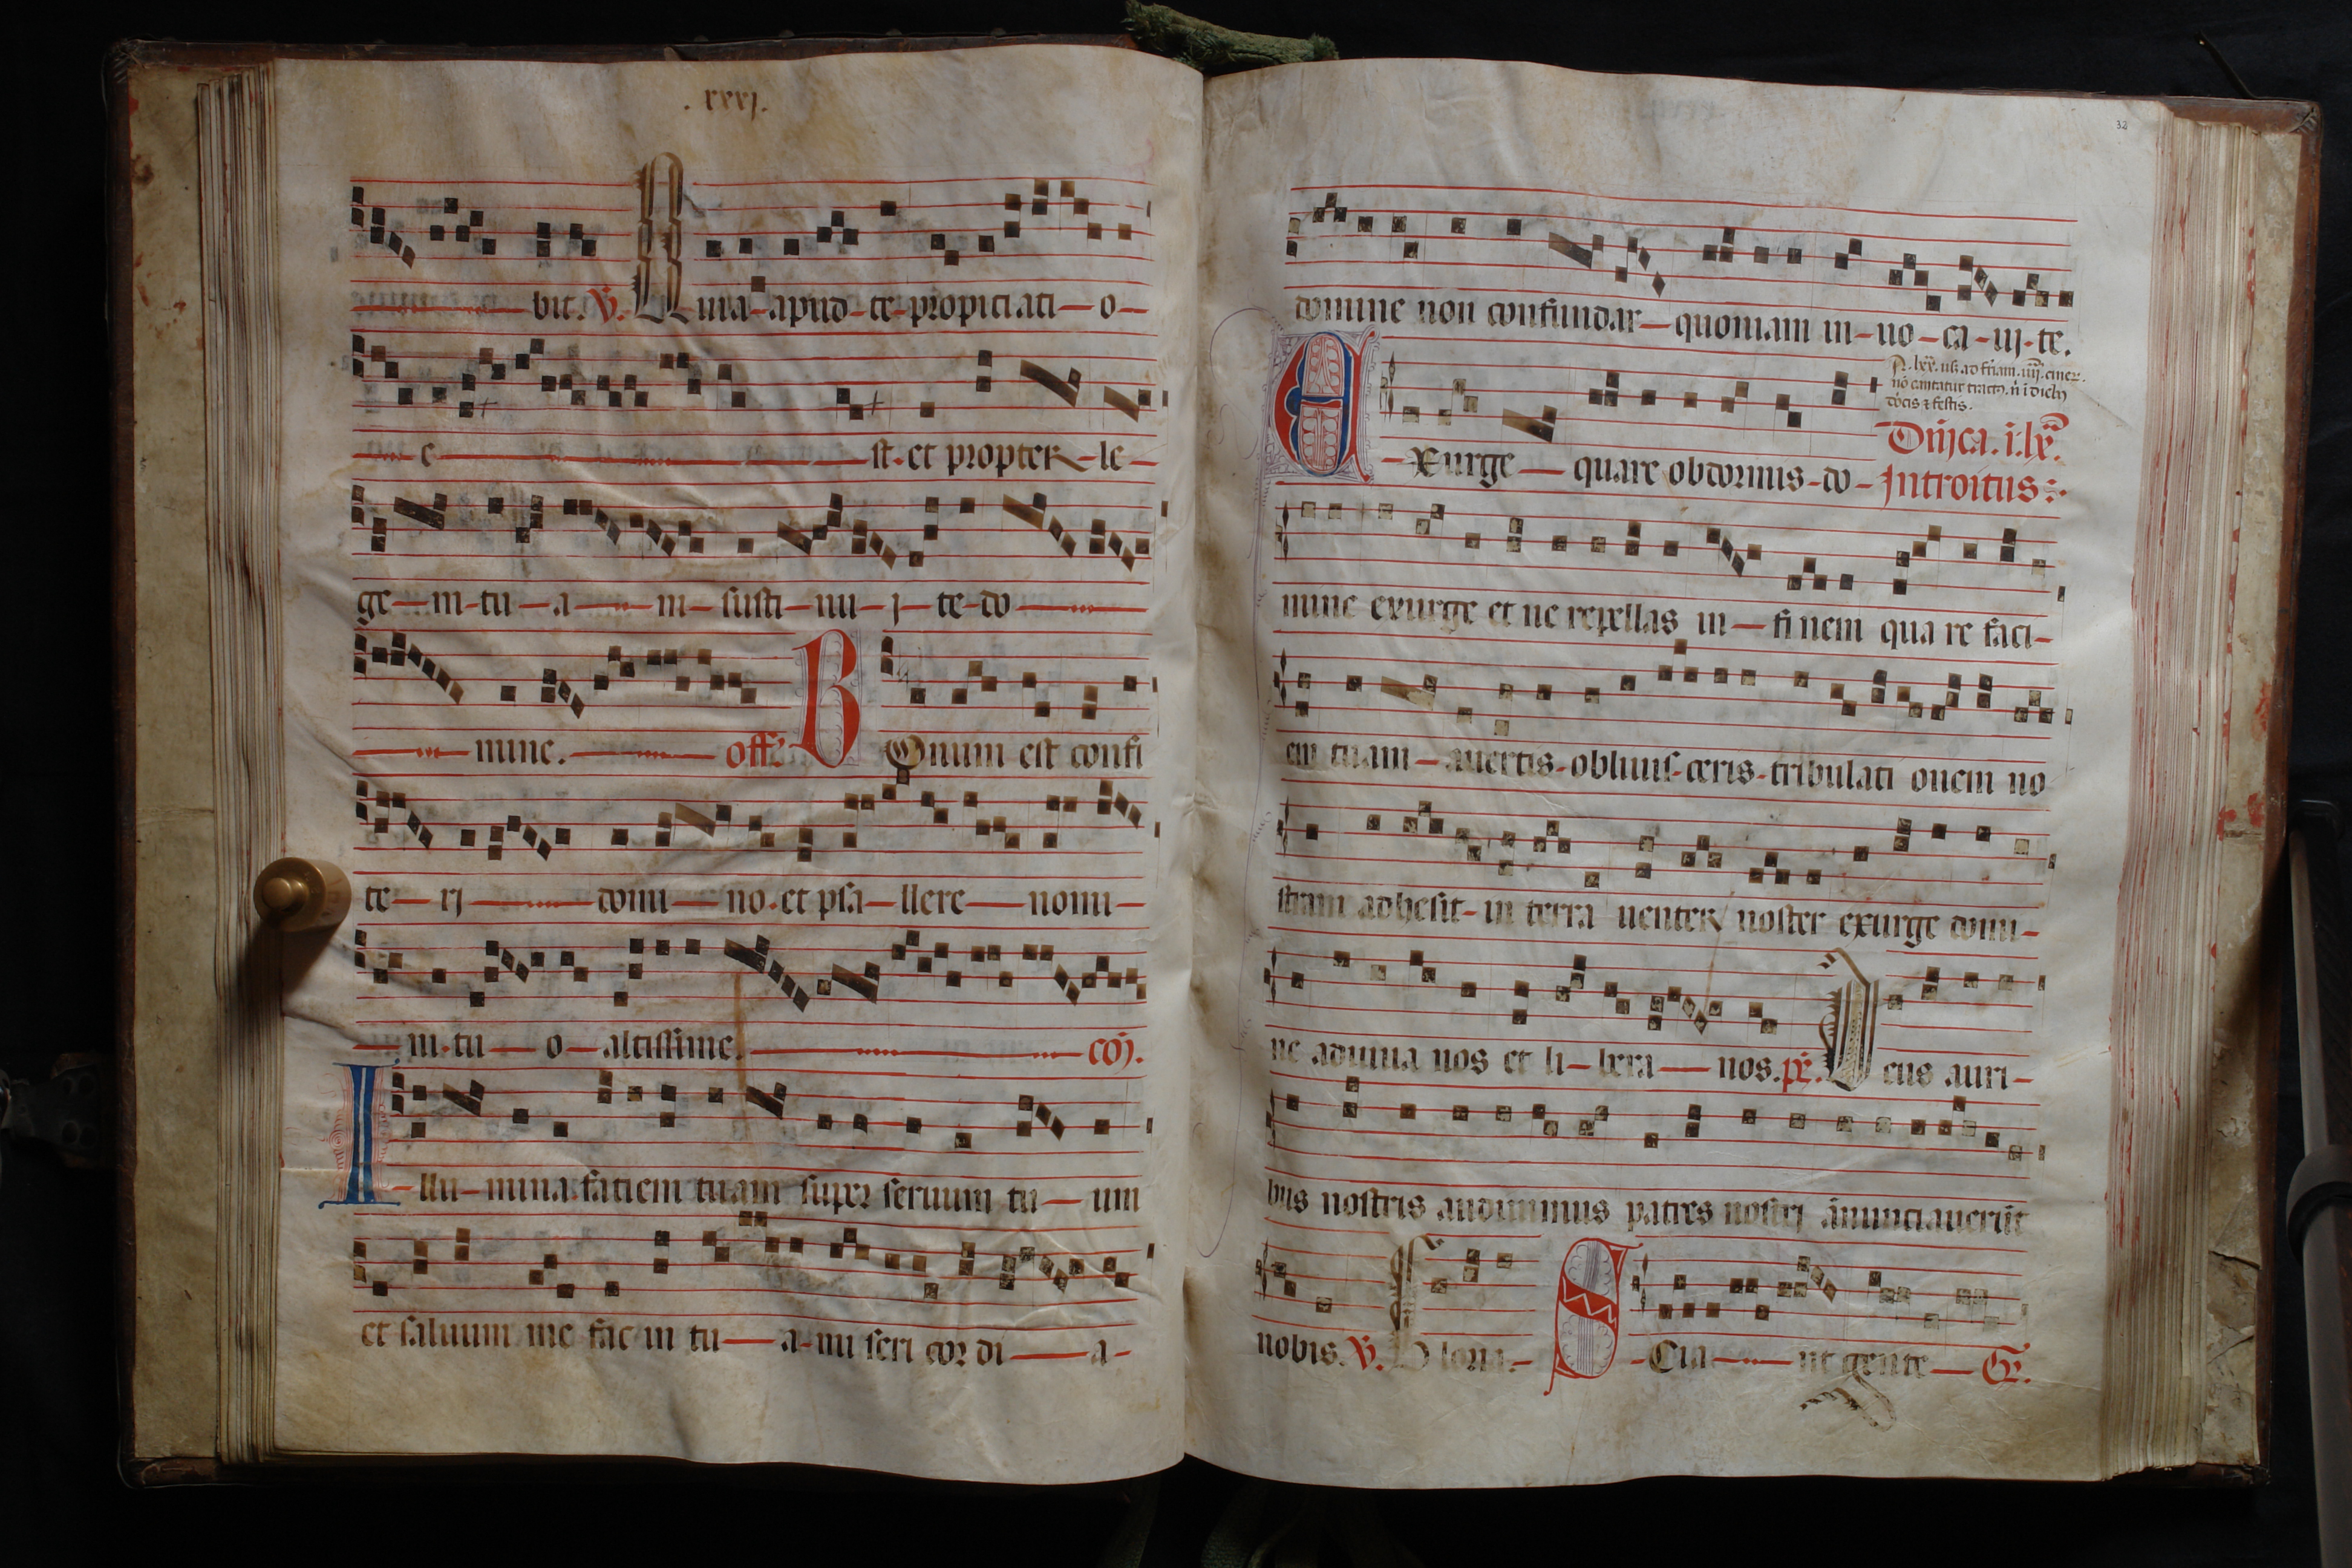 . xxxj.
bit. V. Quia apud te propiciati o
e st. et propter le
ge m tu a m susti nu j te do
mine. off. B Onum est confi
te rj domi no. et psa llere nomi
ni tu o altissime. co.
I llu mina faciem tuam super seruum tu um
et saluum me fac in tu a mi seri cor di a
32
domine non confundar quoniam in uo ca uj te.
dnicis & festis.
Dnica. i. lx.
E xurge quare obdormis do Introitus
mine exurge et ne repellas in finem qua re faci
em tuam auertis obliuis ceris tribulati onem no
stram adhesit in terra uenter noster exurge domi
ne adiuua nos et li bera nos. ps. Deus auri
bus nostris audiuimus patres nostrj anunciauerut
nobis. V. Gloria. S Cia nt gente Gr.